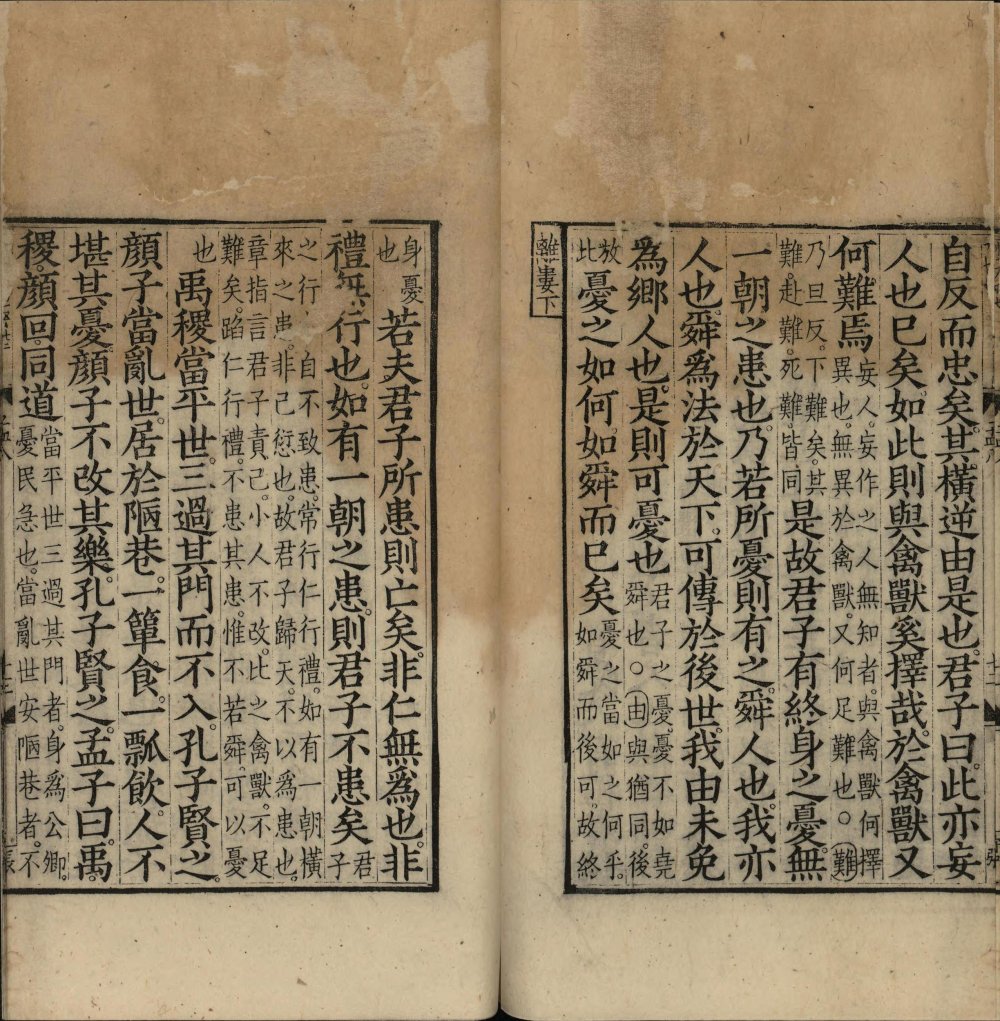 自反而忠矣。其橫逆由是也。君子曰。此亦妄
人也已矣。如此則與禽獸奚擇哉。於禽獸又
何難焉
妄人。妄作之人無知者。與禽獸何擇
異也。無異於禽獸。又何足難也。○難
乃旦反。下難矣。其
難。赴難。死難。皆同
是故君子有終身之憂無
一朝之患也。乃若所憂則有之。舜人也。我亦
人也。舜爲法於天下。可傳於後世。我由未免
爲鄉人也。是則可憂也
君子之憂。憂不如堯
舜也。○由與猶同。後
放
此
憂之如何。如舜而已矣
憂之當如之何乎。
如舜而後可。故終
離婁下
身憂
也
若夫君子所患則亡矣。非仁無爲也。非
禮 行也。如有一朝之患。則君子不患矣
君
子
之行 自不致患。常行仁行禮。如有一朝橫
來之患。非己愆也。故君子歸天。不以爲患也。
章指言君子責己。小人不改。比之禽獸。不足
難矣。蹈仁行禮。不患其患。惟不若舜。可以憂
也
禹稷當平世。三過其門而不入。孔子賢之。
顏子當亂世。居於陋巷。一簞食。一瓢飲。人不
堪其憂。顏子不改其樂。孔子賢之。孟子曰。禹
稷。顏回。同道
當平世三過其門者。身爲公卿。
憂民急也。當亂世安陋巷者。不